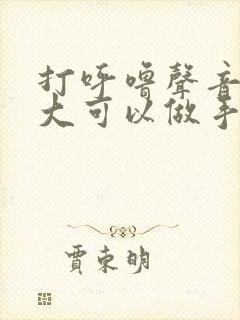 打呼嚕聲音
大可以做手
賈東明